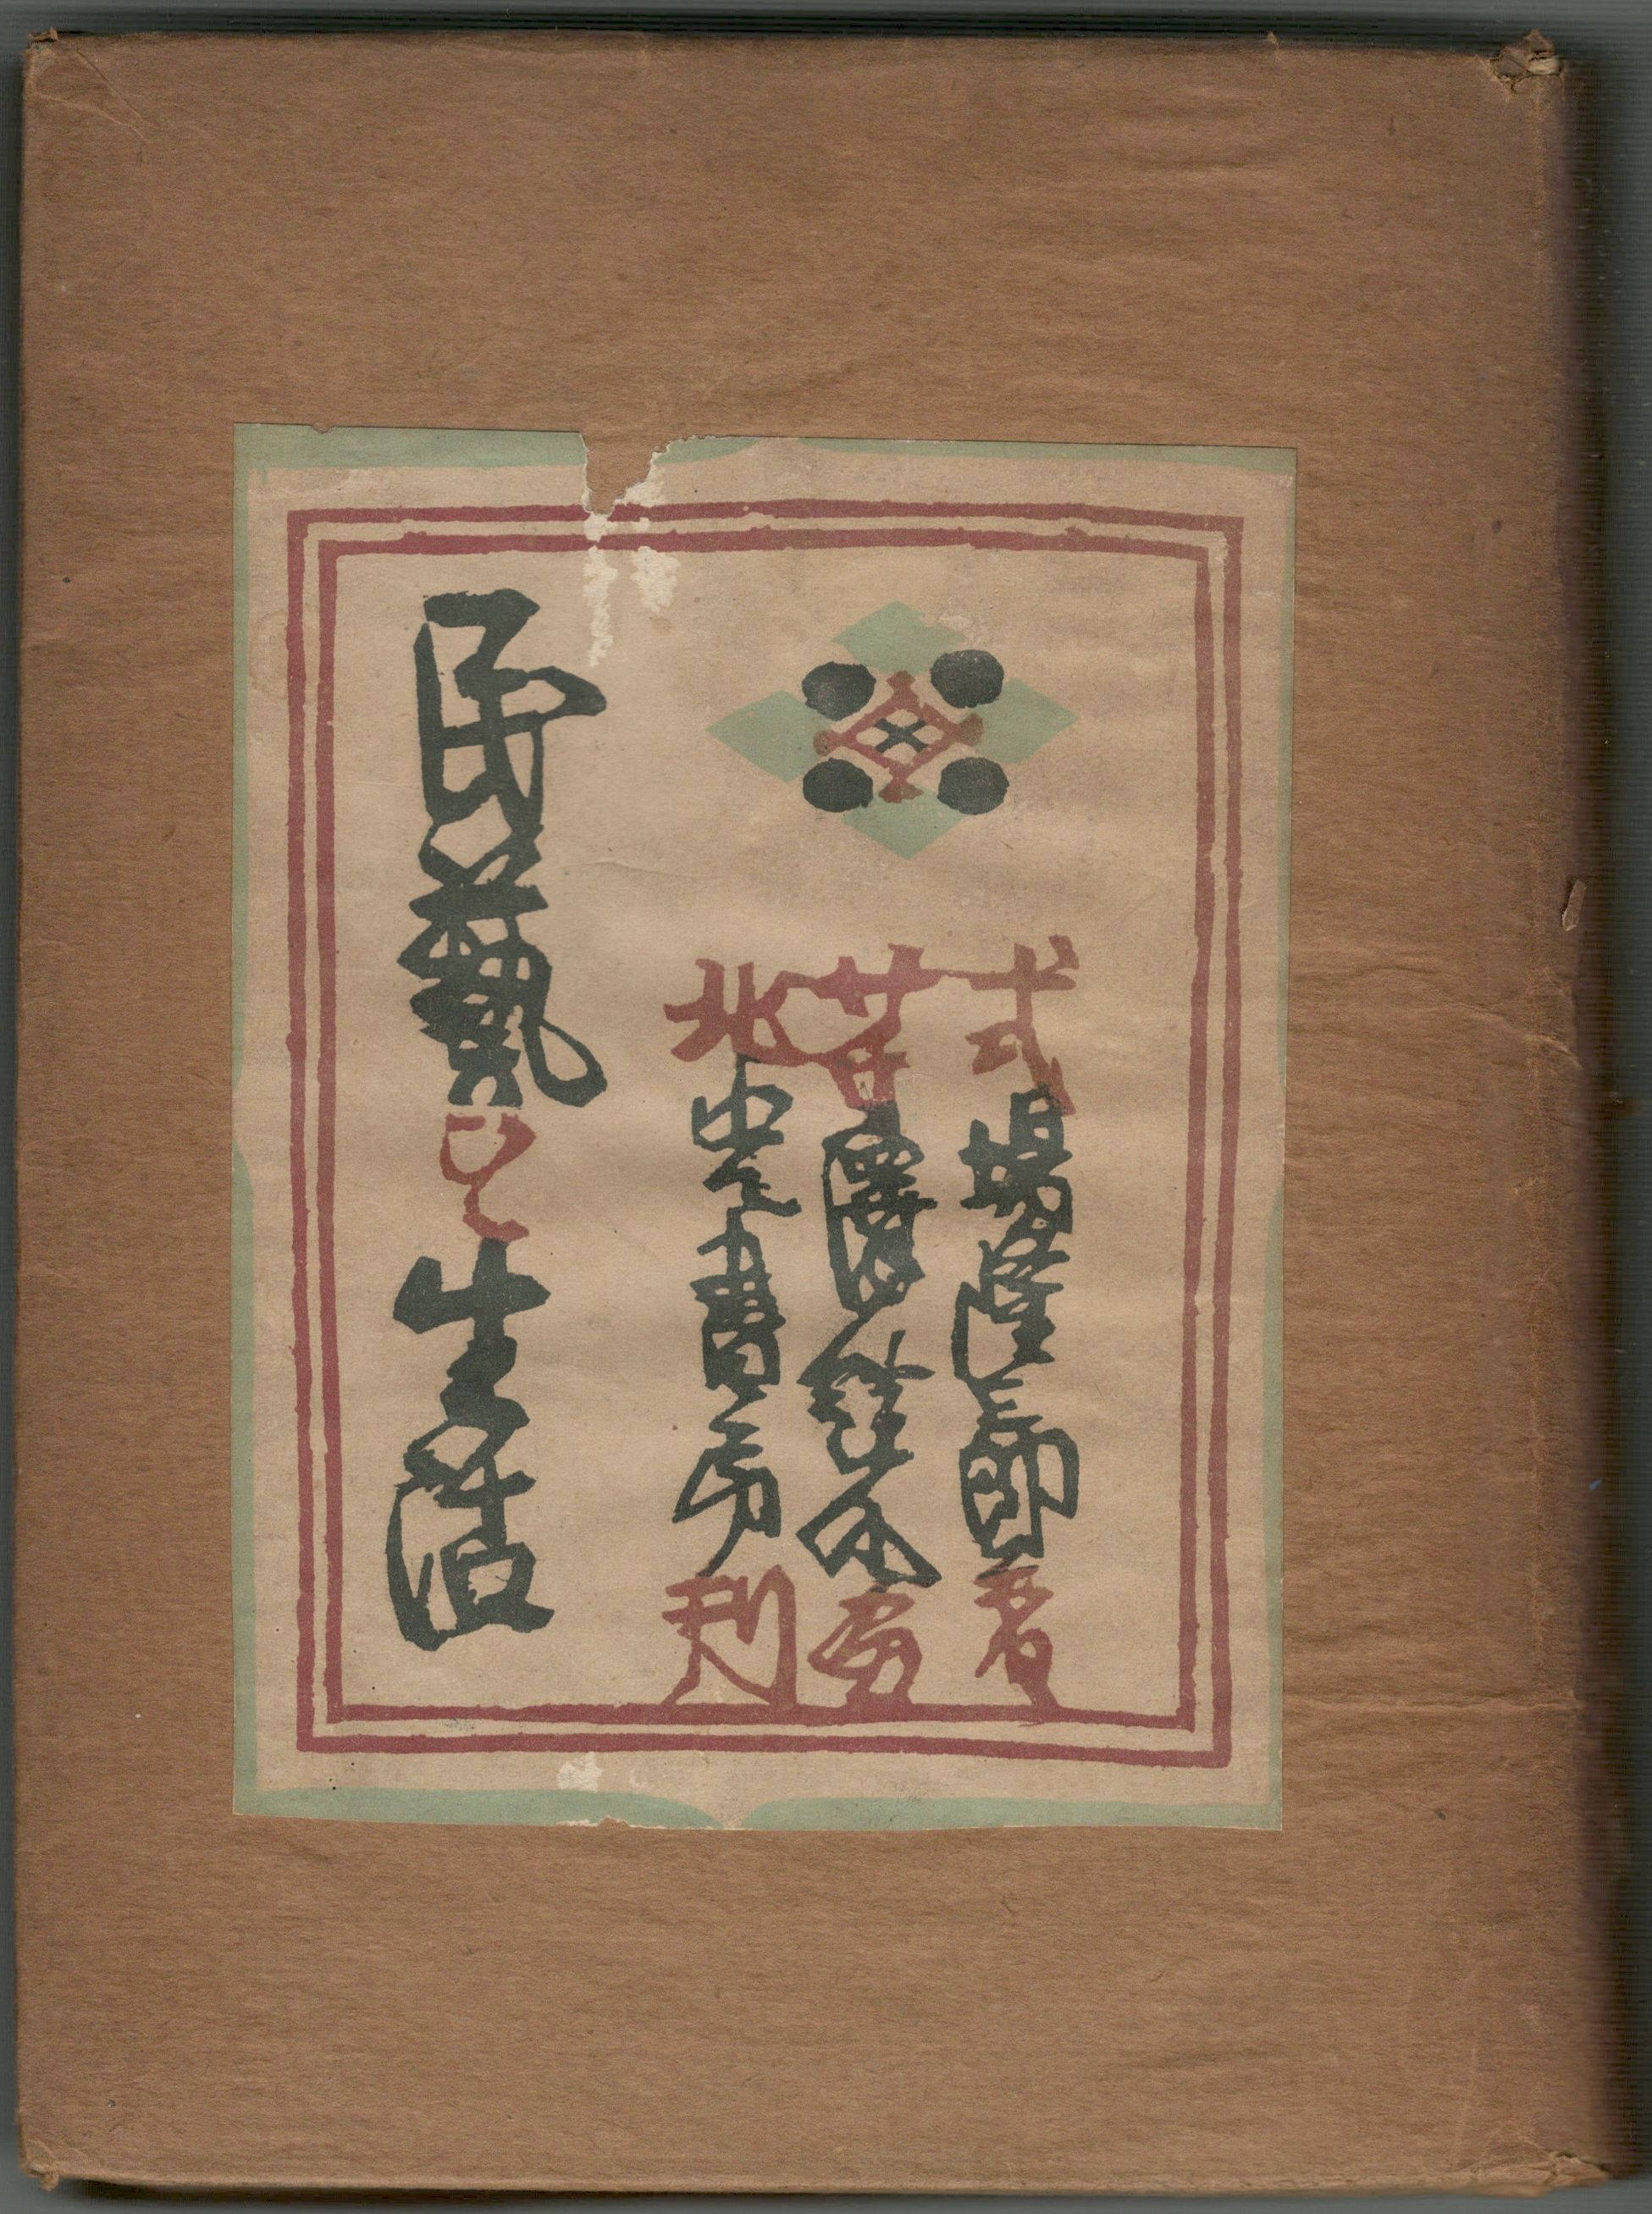 式場隆三郎著
芹澤銈介画
北光書房刊
民藝と生活